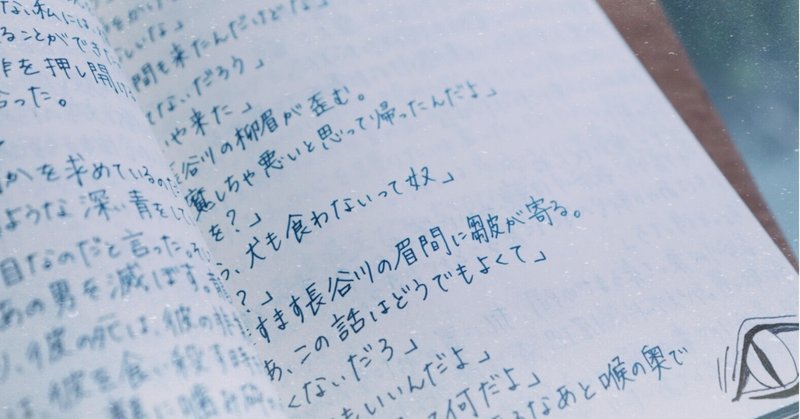 ない、私には
ることができた
を押し開け
合った。
かを求めているのだと
ような深い青をして
目なのだと言った。
あの男を滅ぼす。
、彼の死は、彼の
は彼を食い殺す時
いな」
間も来たんだけどな」
てないだろう」
や来た」
長谷川の柳眉が歪む。
魔しちゃ悪いと思って帰ったんだよ」
を?」
う、犬も食わないって奴」
?」
すます長谷川の眉間に皺が寄る。
あ、この話はどうでもよくて」
くないだろ」
もいいんだよ」
て何だよ」
るなあと喉の奥で